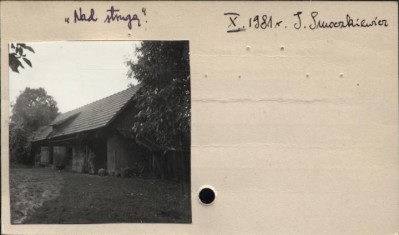 "Nad strugą".
X. 1981 r. J. Smoczkiewicz